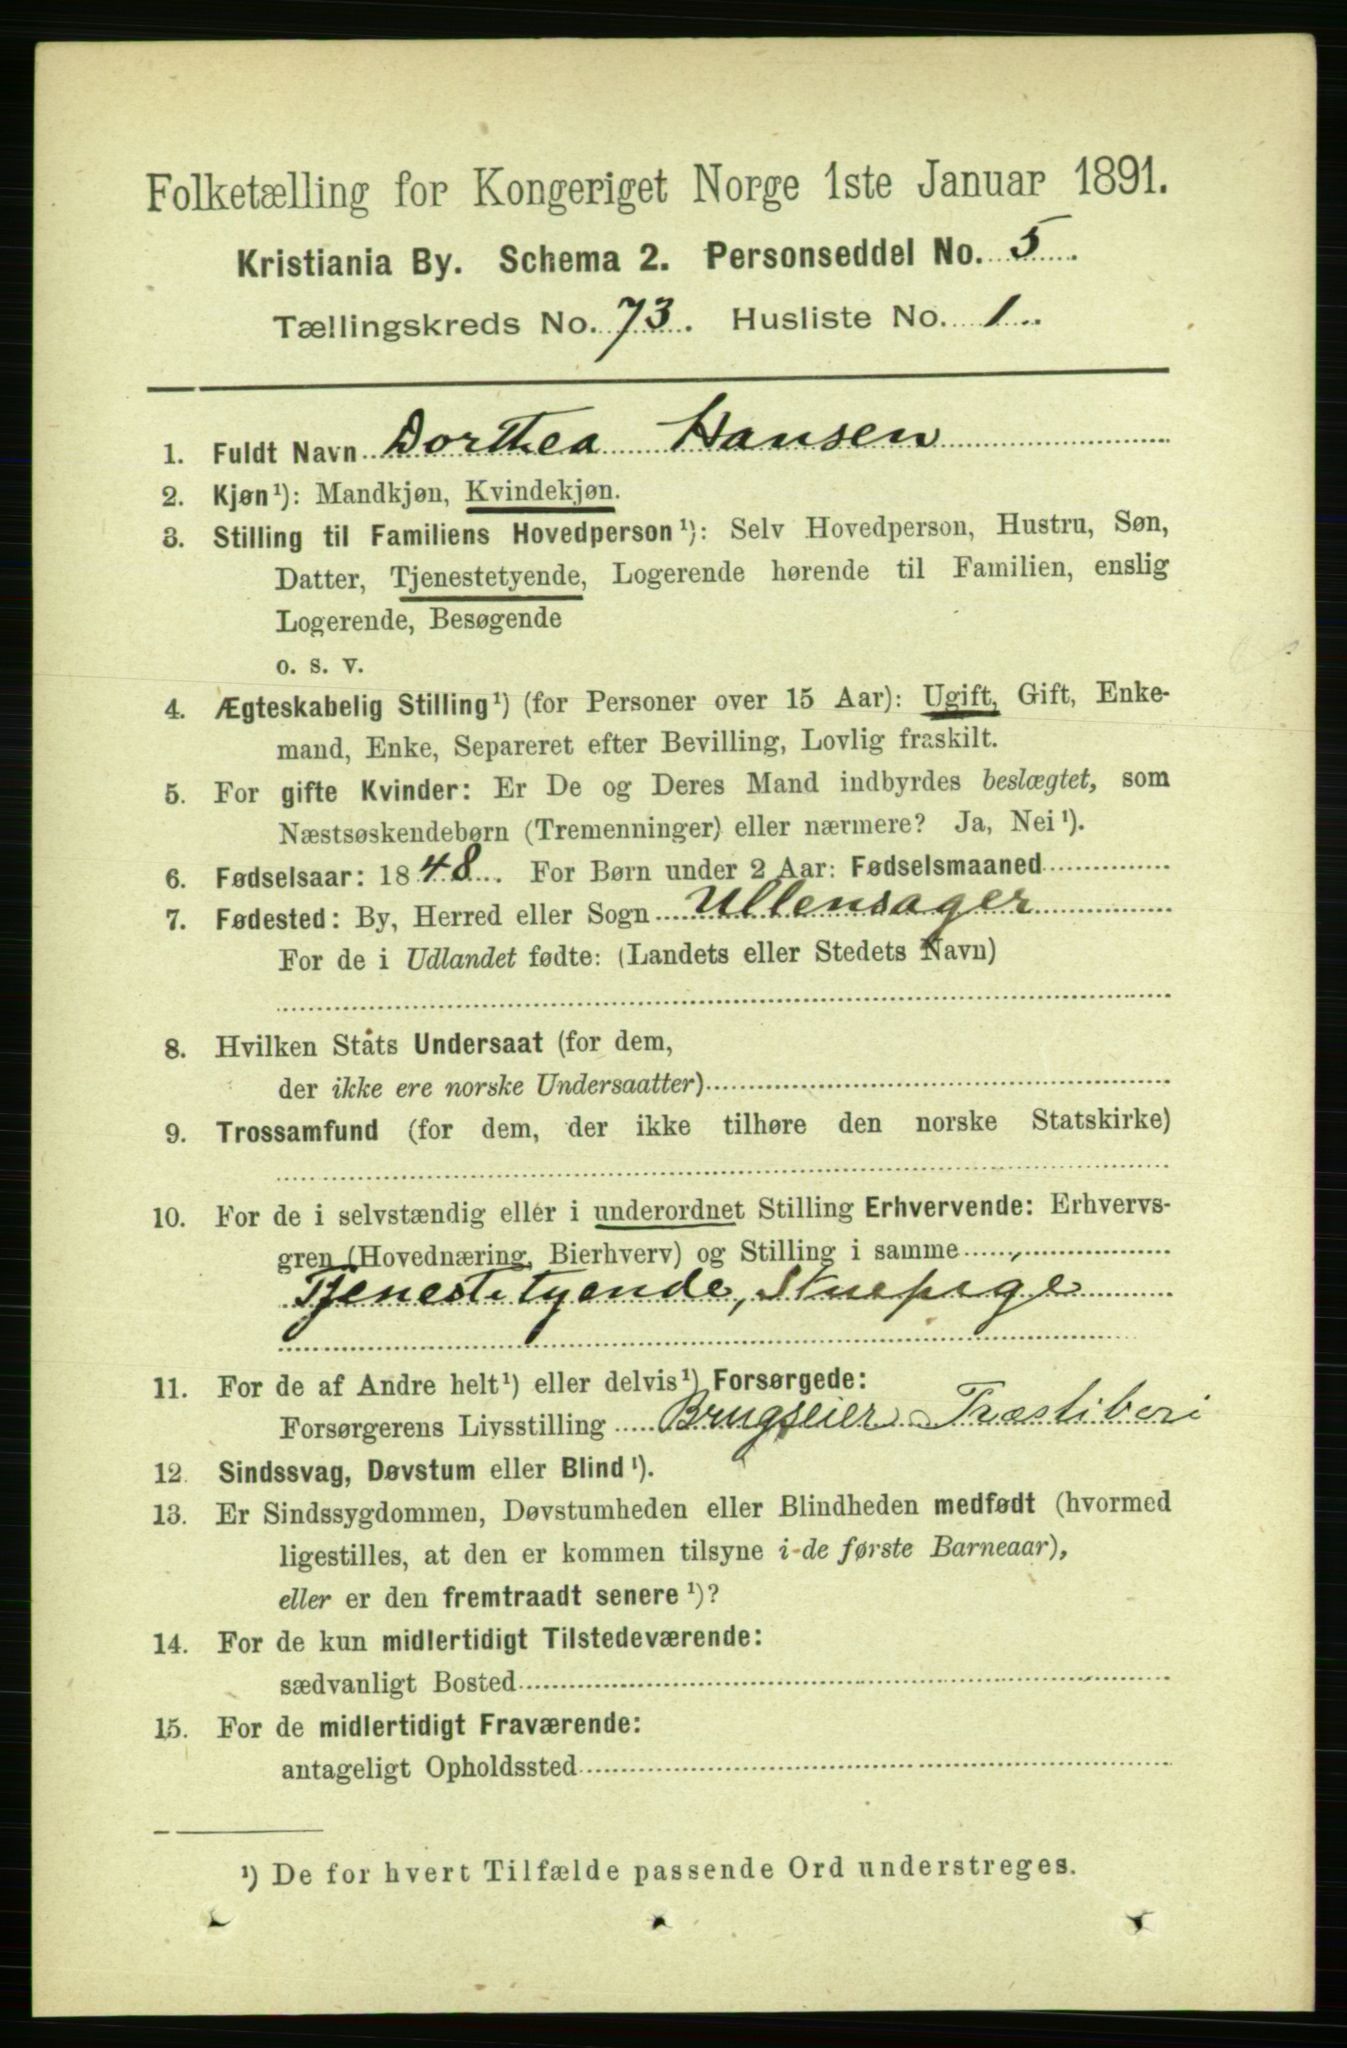 Folketælling for Kongeriget Norge 1ste Januar 1891.
Kristiania By. Schema 2. Personseddel No. 5.
Tællingskreds No. 73. Husliste No. 1.
1. Fuldt Navn Dorthea Hansen
2. Kjøn¹): Mandkjøn, Kvindekjøn.
3. Stilling til Familiens Hovedperson¹): Selv Hovedperson, Hustru, Søn,
Datter, Tjenestetyende, Logerende hørende til Familien, enslig
Logerende, Besøgende
o. s. v.
4. Ægteskabelig Stilling¹) (for Personer over 15 Aar): Ugift, Gift, Enke-
mand, Enke, Separeret efter Bevilling, Lovlig fraskilt.
5. For gifte Kvinder: Er De og Deres Mand indbyrdes beslægtet, som
Næstsøskendebørn (Tremenninger) eller nærmere? Ja, Nei¹).
6. Fødselsaar: 1848. For Børn under 2 Aar: Fødselsmaaned
7. Fødested: By, Herred eller Sogn Ullensager
For de i Udlandet fødte: (Landets eller Stedets Navn)
8. Hvilken Stats Undersaat (for dem,
der ikke ere norske Undersaatter)
9. Trossamfund (for dem, der ikke tilhøre den norske Statskirke)
10. For de i selvstændig eller i underordnet Stilling Erhvervende: Erhvervs-
gren (Hovednæring, Bierhverv) og Stilling i samme
Tjenestetyende, Stuepige
11. For de af Andre helt¹) eller delvis¹) Forsørgede:
Forsørgerens Livsstilling Brugseier Træsliberi
12. Sindssvag, Døvstum eller Blind¹).
13. Er Sindssygdommen, Døvstumheden eller Blindheden medfødt (hvormed
ligestilles, at den er kommen tilsyne i de første Barneaar),
eller er den fremtraadt senere¹)?
14. For de kun midlertidigt Tilstedeværende:
sædvanligt Bosted
15. For de midlertidigt Fraværende:
antageligt Opholdssted
¹) De for hvert Tilfælde passende Ord understreges.